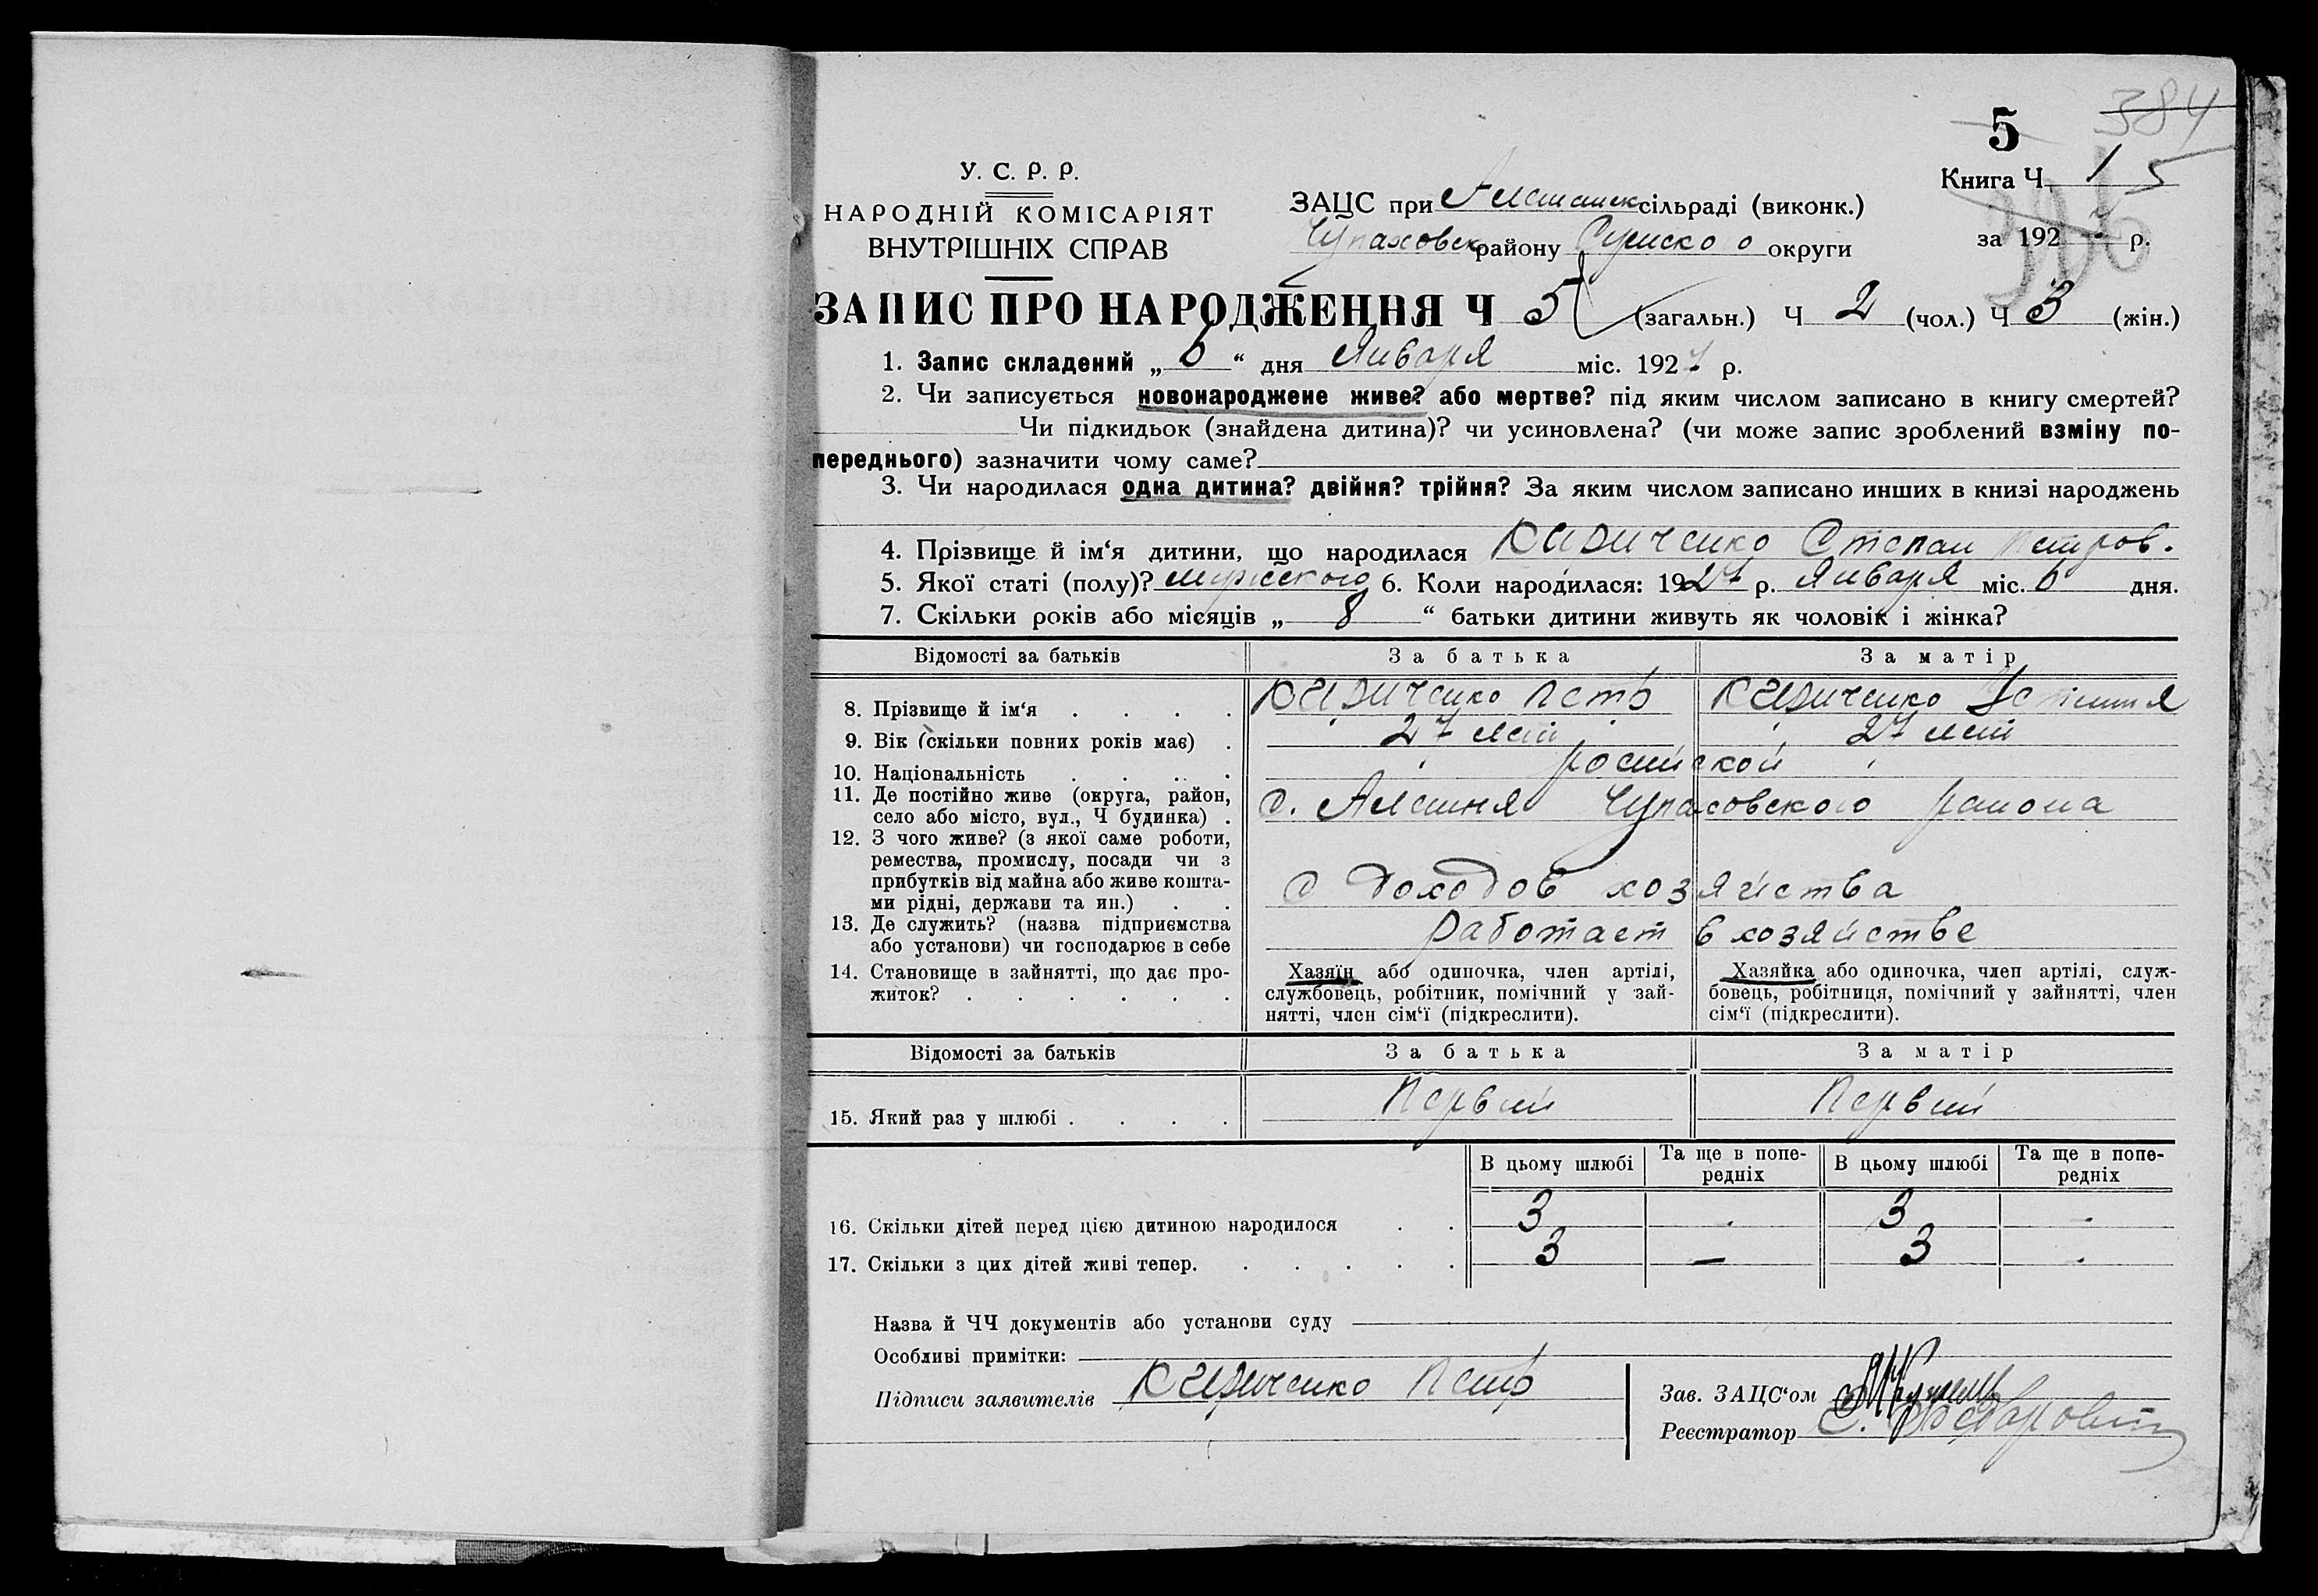 384
5
У. С. Р. Р.
НАРОДНІЙ КОМІСАРІЯТ
ВНУТРІШНІХ СПРАВ
Книга Ч. 1 5
ЗАЦС при Алешанск сільраді (виконк.)
Чупаховск району Сумского округи
за 1927 р.
ЗАПИС ПРО НАРОДЖЕННЯ Ч 5 (загальн.) Ч 2 (чол.) Ч 3 (жін.)
1. Запис складений „ 6 “ дня Января міс. 1927 р.
2. Чи записується новонароджене живе? або мертве? під яким числом записано в книгу смертей?
Чи підкидьок (знайдена дитина)? чи усиновлена? (чи може запис зроблений взміну по-
переднього) зазначити чому саме?
3. Чи народилася одна дитина? двійня? трійня? За яким числом записано инших в книзі народжень
4. Прізвище й ім‘я дитини, що народилася Кириченко Степан Петров.
5. Якої статі (полу)? мужского 6. Коли народилася: 1927 р. Января міс. 6 дня.
7. Скільки років або місяців „ 8 “ батьки дитини живуть як чоловік і жінка?
Відомості за батьків За батька За матір
8. Прізвище й ім‘я . . . . Кириченко Петр Кириченко Устиния
9. Вік (скільки повних років має) . 27 лет 27 лет
10. Національність . . . .
11. Де постійно живе (округа, район,
село або місто, вул., Ч будинка) . с. Алешня Чупаховского района
12. З чого живе? (з якої саме роботи,
ремества, промислу, посади чи з
прибутків від майна або живе кошта-
ми рідні, держави та ин.) . . С доходов хозяйства
13. Де служить? (назва підприємства
або установи) чи господарює в себе Работает в хозяйстве
14. Становище в зайнятті, що дає про-
житок? . . . . . .
Хазяїн або одиночка, член артілі,
службовець, робітник, помічний у зай-
нятті, член сім‘ї (підкреслити).
Хазяйка або одиночка, член артілі, служ-
бовець, робітниця, помічний у зайнятті, член
сім‘ї (підкреслити).
Відомості за батьків За батька За матір
15. Який раз у шлюбі . . . . Первий Первий
В цьому шлюбі Та ще в попе-
редніх В цьому шлюбі Та ще в попе-
редніх
16. Скільки дітей перед цією дитиною народилося . . 3 - 3 -
17. Скільки з цих дітей живі тепер. . . . . . 3 — 3 -
Назва й ЧЧ документів або установи суду
Особливі примітки:
Підписи заявителів Кириченко Петр
Зав. ЗАЦС‘ом
Реєстратор